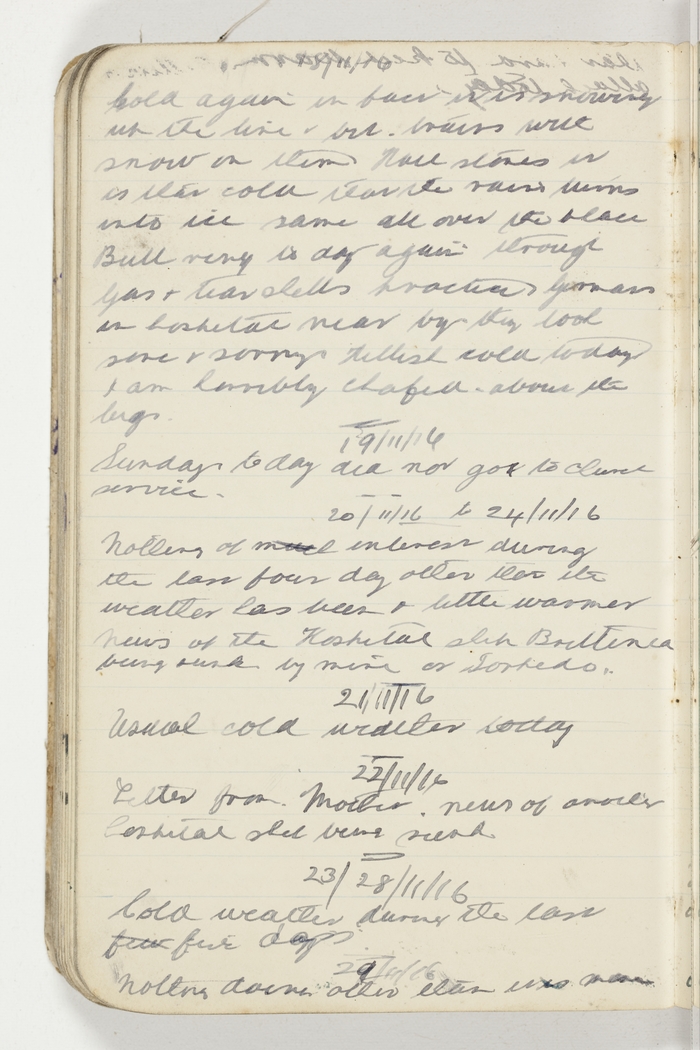 Cold again in fact it is snowing
up the line & trains with
snow on them Hail stones
is that cold that the rain turns
into ice same all over the place
Bull ring to day again through
Gas & tear shells practice Germans
in hospital near by they look
sore & sorry Hellish cold today
I am horribly chafed about the
legs.
19/11/16
Sunday to day did not go to church
service.
20/11/16 to 24/11/16
Nothing of interest during
the last four day other than the
weather has been a little warmer
news of the Hospital ship Brittenica
being sunk by mine or Torpedo.
21/11/16
Usual cold weather today
22/11/16
Letter from Mother. news of another
hospital ship being sunk
23/ 28/11/16
Cold weather during the last
few five days
29/11/16
Nothing doing other than was